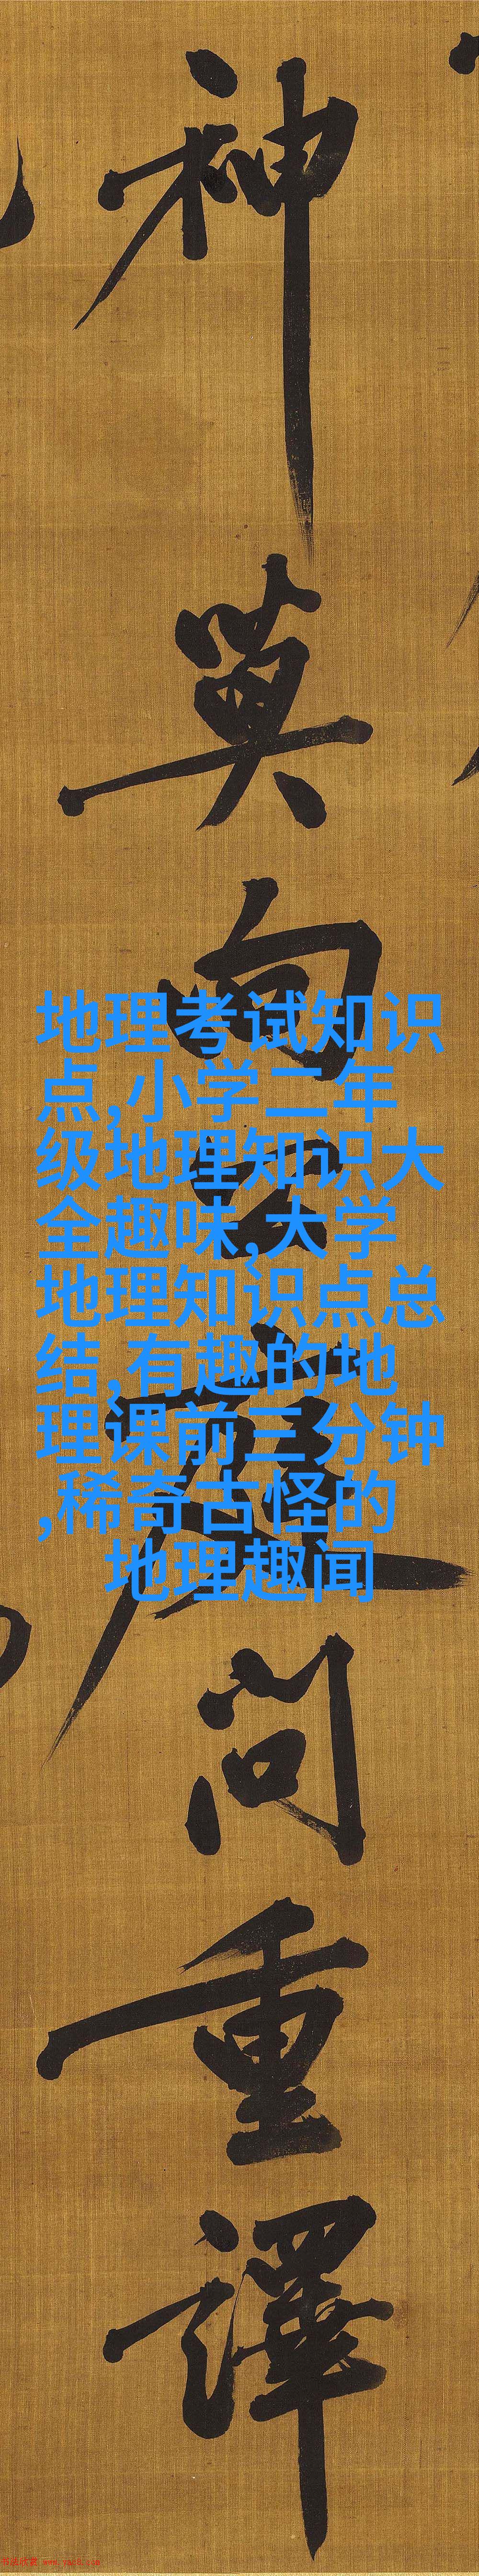 神莫向天庭問重譯
地理考试知识
点,小学二年
级地理知识大
全趣味,大学
地理知识点总
结,有趣的地
理课前三分钟
,稀奇古怪的
地理趣闻